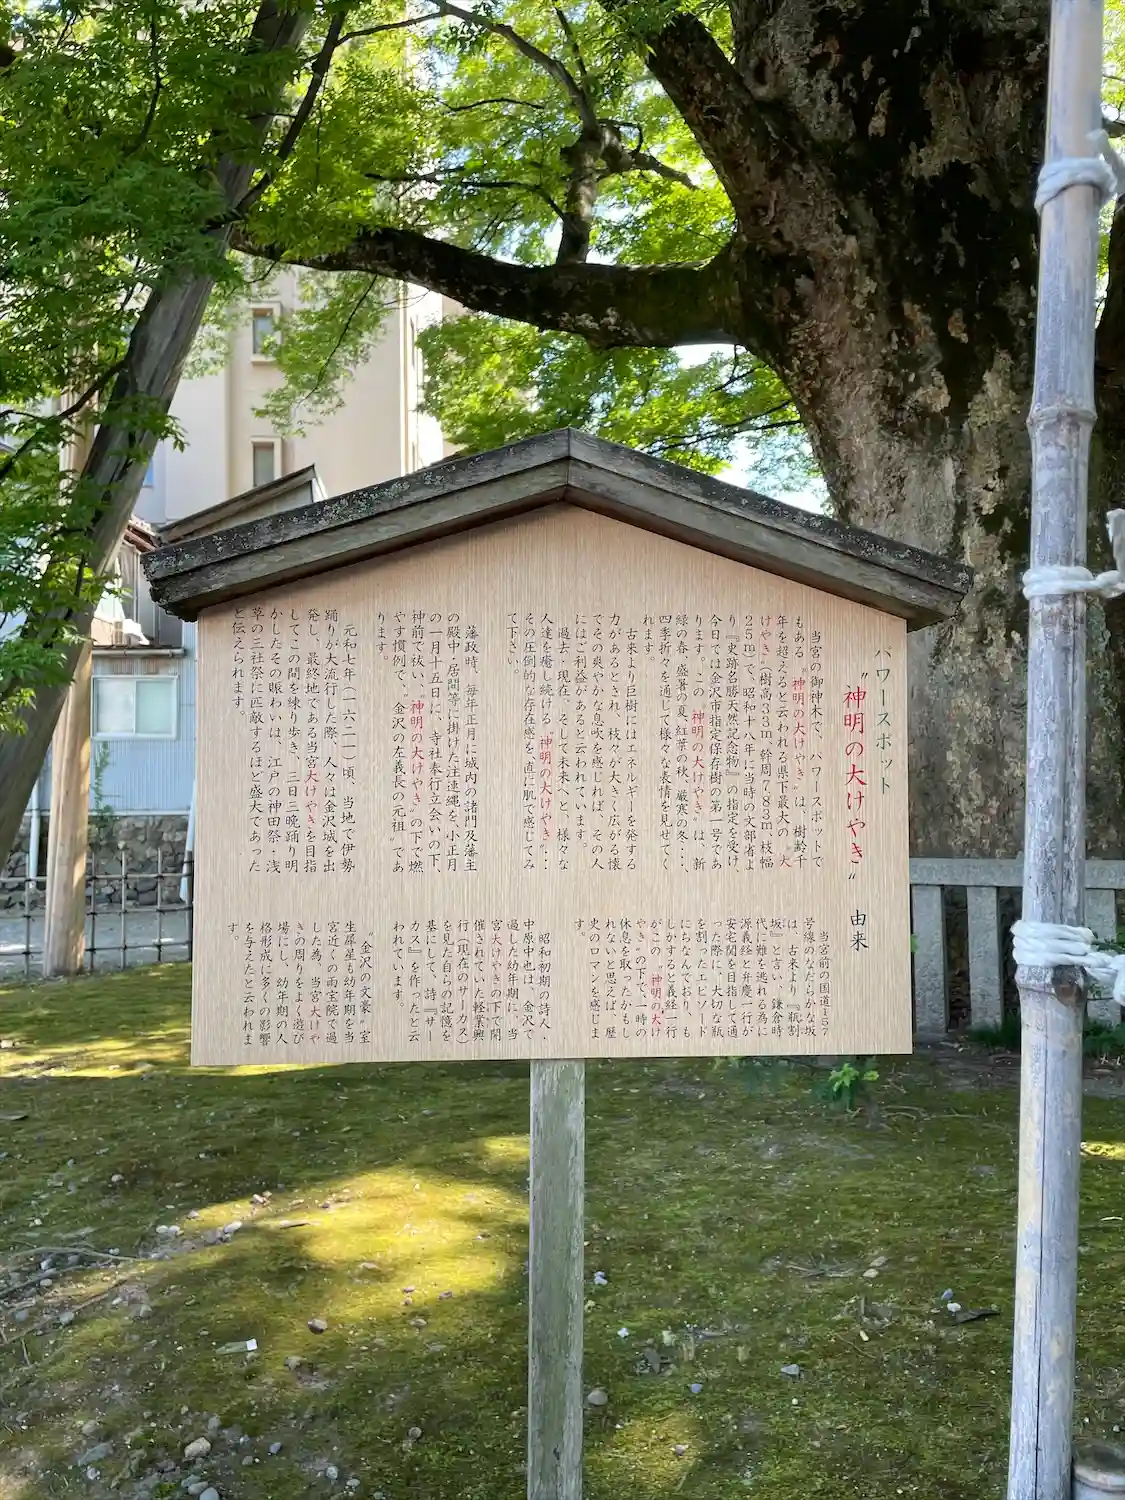 パワースポット
“神明の大けやき” 由来
当宮の御神木で、パワースポットで
もある、“神明の大けやき”は、樹齢千
年を超えると云われる県下最大の“大
けやき”樹高33m、幹周7.83m、枝幅
25mで、昭和十八年に当時の文部省よ
り『史跡名勝天然記念物』の指定を受け、
今日では金沢市指定保存樹の第一号であ
ります。この“神明の大けやき”は、新
緑の春、盛暑の夏、紅葉の秋、厳寒の冬・・・、
四季折々を通じて様々な表情を見せてく
れます。
古来より巨樹にはエネルギーを発する
力があるとされ、枝々が大きく広がる懐
でその爽やかな息吹を感じれば、その人
にはご利益があると云われています。
過去・現在、そして未来へと、様々な
人達を癒し続ける“神明の大けやき”・・・
その圧倒的な存在感を、直に肌で感じてみ
て下さい。
藩政時、毎年正月に城内の諸門及藩主
の殿中・居間等に掛けた注連縄を、小正月
の一月十五日に、寺社奉行立会いの下、
神前で祓い、“神明の大けやき”の下で燃
やす慣例で、“金沢の左義長の元祖”であ
ります。
元和七年(一六二一)頃、当地で伊勢
踊りが大流行した際、人々は金沢城を出
発し、最終地である当宮大けやきを目指
してこの間を練り歩き、三日三晩踊り明
かしたその賑わいは、江戸の神田祭・浅
草の三社祭に匹敵するほど盛大であった
と伝えられます。
当宮前の国道157
号線のなだらかな坂
は、古来より『瓶割
坂』と言い、鎌倉時
代に難を逃れる為に
源義経・弁慶一行が
安宅関を目指して通
った際に、大切な瓶
を割ったエピソード
にちなんでおり、も
しかすると義経一行
がこの“神明の大け
やき”の下で、一時の
休息を取ったかもし
れないと思えば、歴
史のロマンを感じま
す。
昭和初期の詩人、
中原中也は、金沢で
過した幼年期に、当
宮大けやきの下で開
催されていた軽業興
行(現在のサーカス)
を見た自らの記憶を
基にして、詩『サー
カス』を作ったと云
われています。
“金沢の文豪”室
生犀星も幼年期を当
宮近くの雨宝院で過
した為、当宮大けや
きの周りをよく遊び
場にし、幼年期の人
格形成に多くの影響
を与えたと云われま
す。